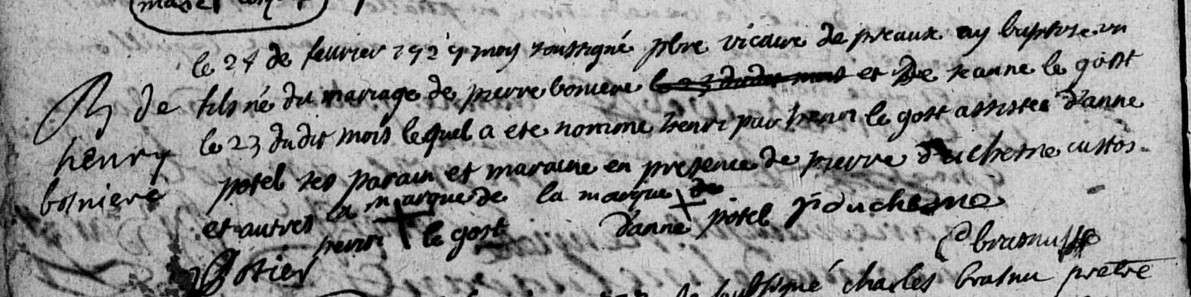 le 24 de feuvrier 1724 moy soussigné pbre vicaire de preaux ay baptisé un
B de
henry
bosniere
fils né du mariage de pierre boniere le 23 dudit mois et de jeanne le gost
le 23 dudit mois lequel a ete nommé henri par henri le gost assistée d'anne
potel ses parain et maraine en presence de pierre duchesne custos
et autres la marque de la marque de
henri + le gost d'anne + potel P duchesne
soussigné charles brasnu prêtre